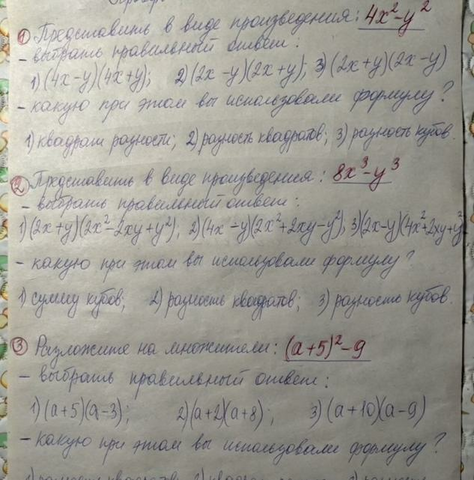 ① Представить в виде произведения: 4x²-y²
- выбрать правильный ответ:
1) (4x-y)(4x+y); 2) (2x-y)(2x+y); 3) (2x+y)(2x-y)
- какую при этом вы использовали формулу?
1) квадрат разности; 2) разность квадратов; 3) разность кубов.
② Представить в виде произведения: 8x³-y³
- выбрать правильный ответ:
1) (2x+y)(2x²-2xy+y²); 2) (4x-y)(2x²+2xy-y²); 3) (2x-y)(4x²+2xy+y²
- какую при этом вы использовали формулу?
1) сумму кубов; 2) разность квадратов; 3) разность кубов.
③ Разложите на множители: (a+5)²-9
- выбрать правильный ответ:
1) (a+5)(a-3); 2) (a+2)(a+8); 3) (a+10)(a-9)
- какую при этом вы использовали формулу?